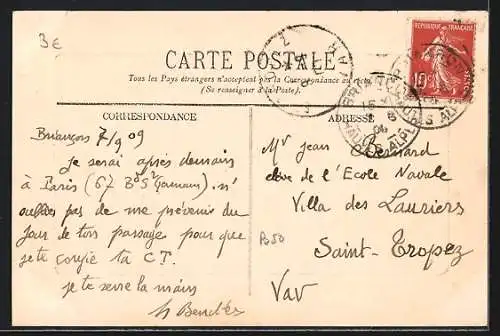 3€
CARTE POSTALE
Tous les Pays étrangers n'acceptent pas la Correspondance au recto
(Se renseigner à la Poste)
REPUBLIQUE FRANÇAISE
10c
POSTES
BRIANÇON
HAUTES ALPES
CORRESPONDANCE
Briançon 7/9 09
je serai après demain
à Paris (67 Bd St Germain). n'
oublies pas de me prévenir du
jour de ton passage pour que
je te confie ta C.T.
je te serre la main
ADRESSE
Mr Jean Bernard
élève de l'Ecole Navale
Villa des Lauriers
Saint-Tropez
Var